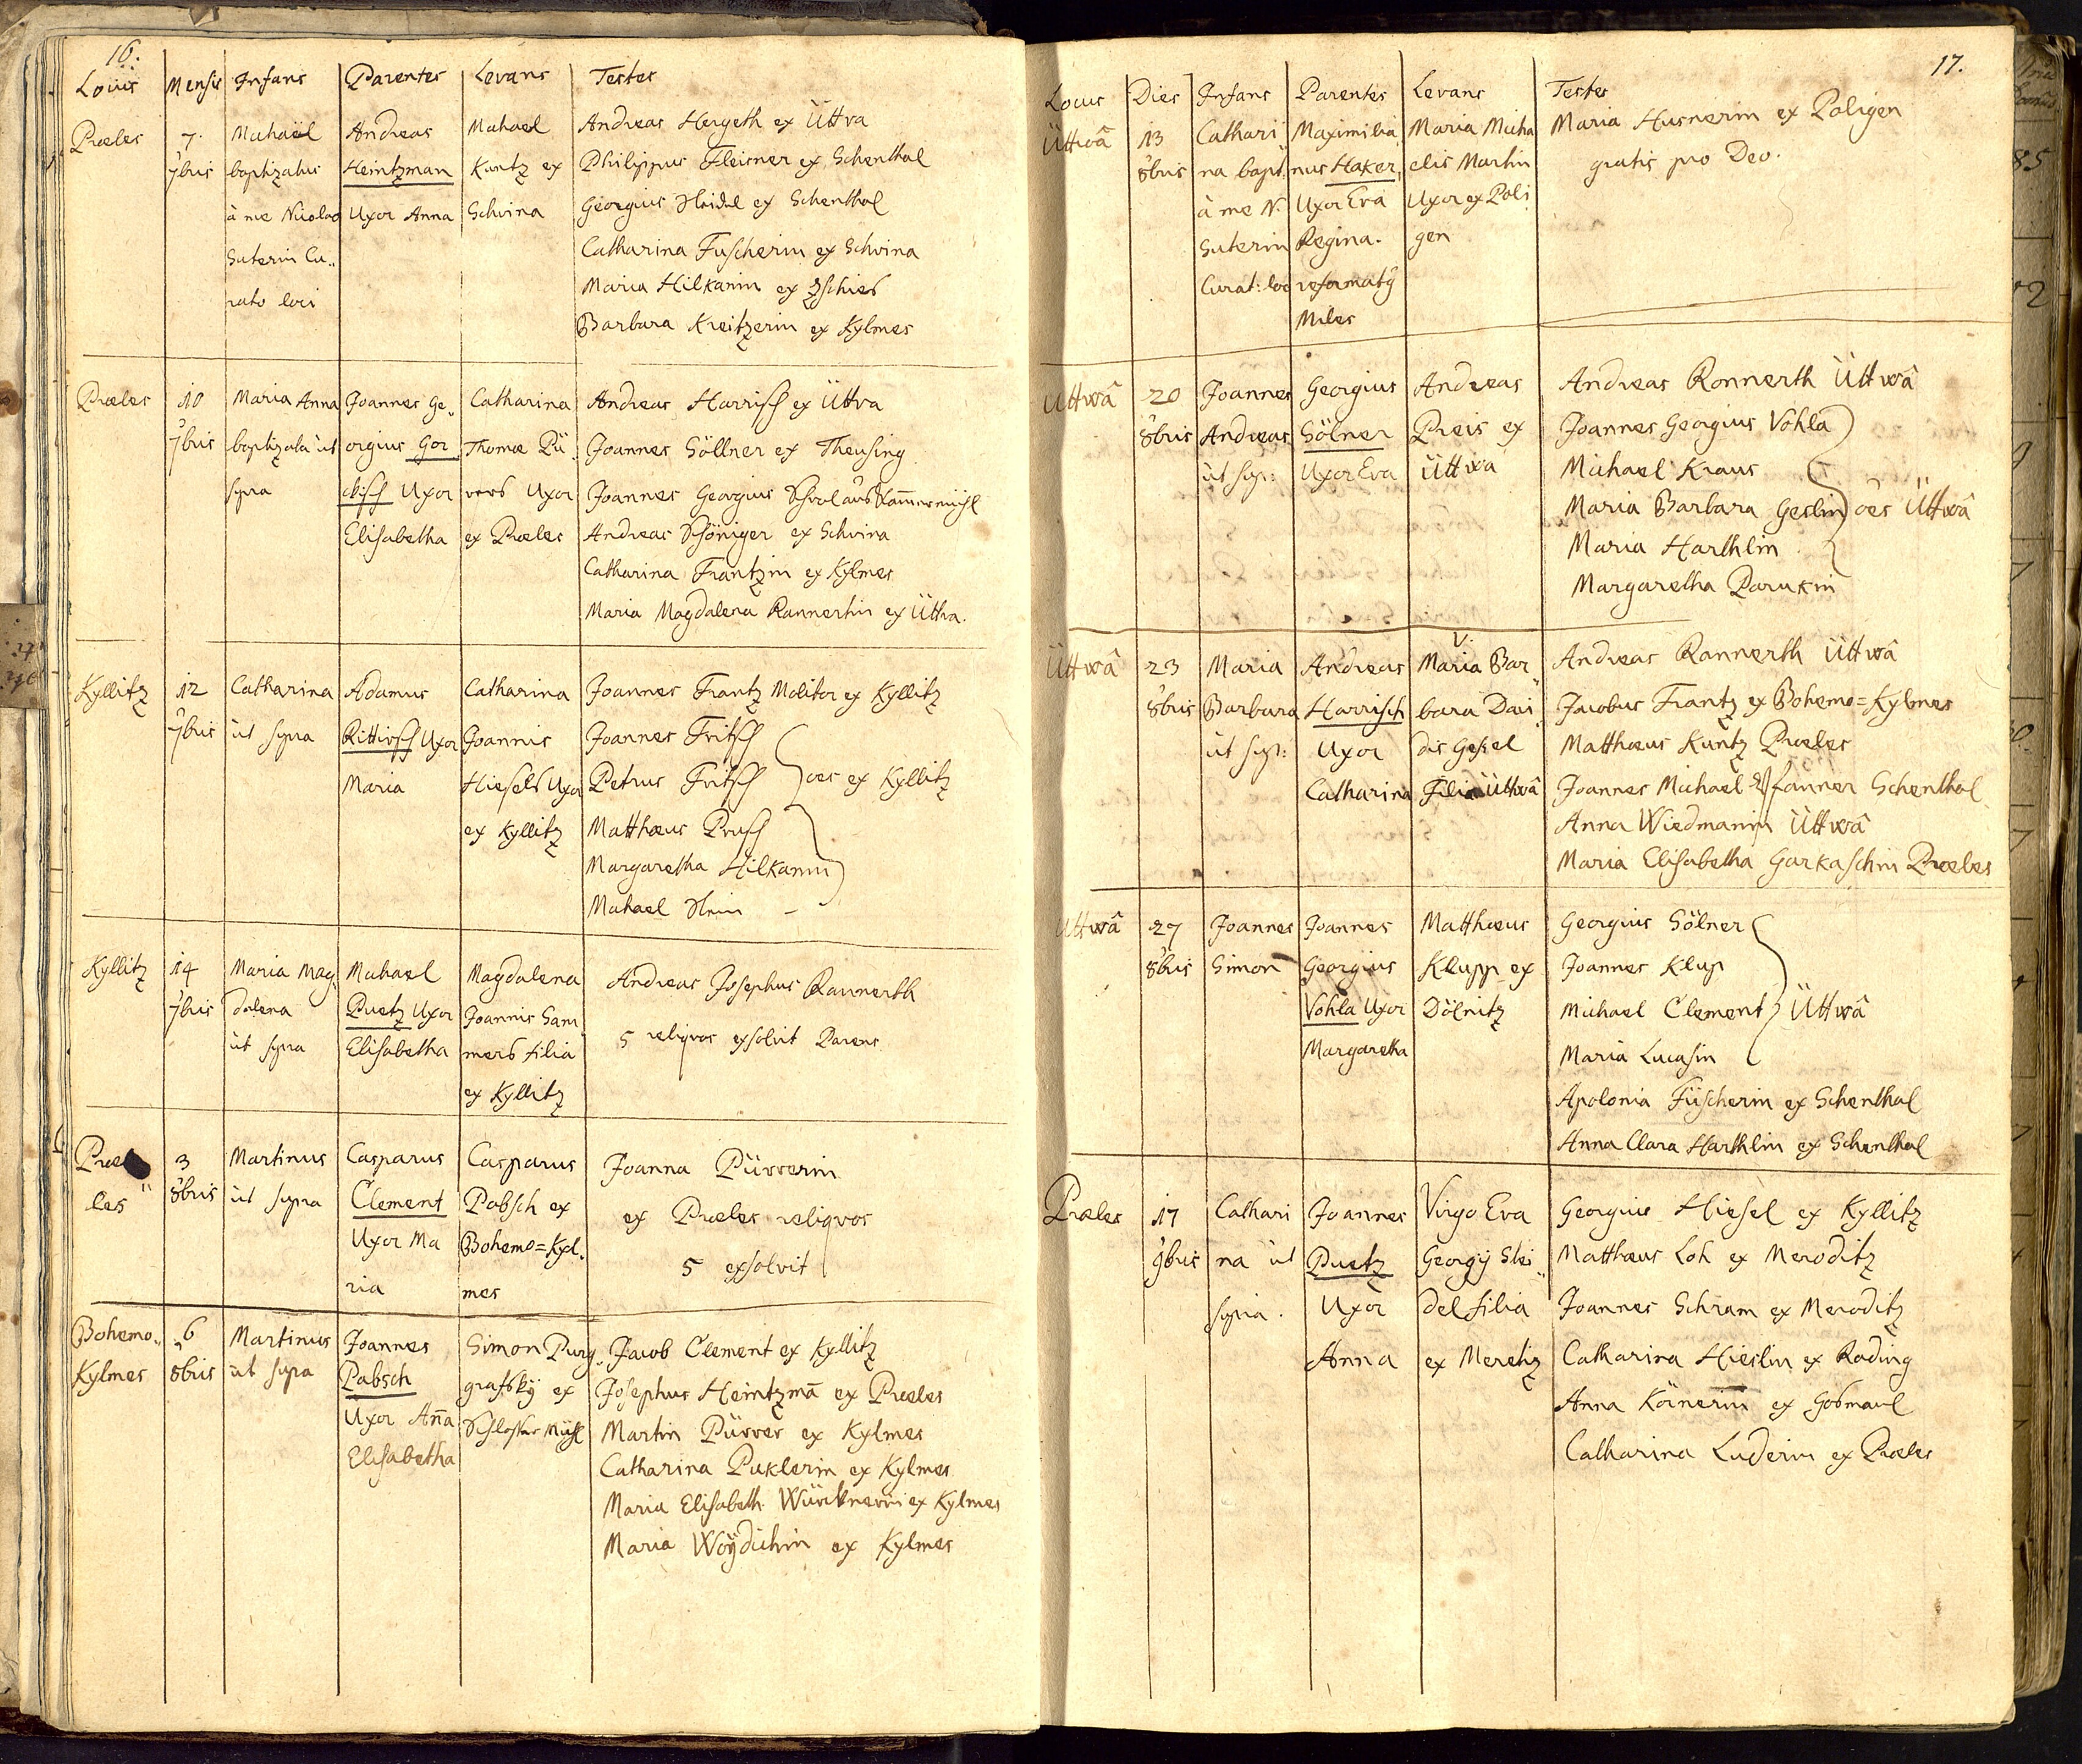 16.
Locus Mensis Infans Parentes Levans Testes
Præles 7. 7bris
Michaël baptizatus
à me Nicolao
Suterin Cu,,
rato loci
Andreas
Heintzman
Uxor Anna
Michael
Kuntz ex
Schvina
Andreas Hergeth ex Üttva
Philippus Fleisner ex Schenthal
Georgius Heidel ex Schenthal
Catharina Fuscherin ex Schvina
Maria Hilkanin ex
Barbara Kreitzerin ex Kylmes
Præles
10
7bris
Maria Anna
baptizata ùt
supra
Joannes Ge,,
orgius Gor
Uxor
Elisabetha
Catharina
Thomæ Pü
rers Uxor
ex Præles
Andreas Harrisch ex Üttva
Joannes Göllner ex Theusing
Joannes Georgius
Andreas Schöniger ex Schvina
Catharina Frantzin ex Kylmes
Maria Magdalena Rannertin ex Üttva.
Kyllitz
12
7bris
Catharina
ùt supra
Adamus
Rittirsch Uxor
Maria
Catharina
Joannis
Hiesels Uxor
ex Kyllitz
Joannes Frantz Molitor ex Kyllitz
Joannes Fritsch
Petrus Fritsch oes ex Kyllitz
Matthæus Prusch
Margaretha Hilkanin
Michael
Kyllitz
14
7bris
Maria Mag,
dalena
ùt supra
Michael
Puetz Uxor
Elisabetha
Magdalena
Joannis Sam
mers filia
ex Kyllitz
Andreas Josephus Rannerth
5 reliqvos exsolvit Parens
Præ
les
3
8bris
Martinus
ùt supra
Casparus
Clement
Uxor Ma
ria
Casparus
Pabsch ex
Bohemo=Kyl,
mes
Joanna Pürrerin
ex Præles reliqvos
5 exsolvit
Bohemo,,
Kylmes
6
8bris
Martinus
ùt supra
Joannes
Pabsch
Uxor Ana
Elisabetha
Simon Purg,,
grafsky ex
Jacob Clement ex Kyllitz
Josephus Heintzmã ex Præles
Martin Pürrer ex Kylmes
Catharina Puklerin ex Kylmes
Maria Elisabeth. ex Kylmes
Maria Woÿdichin ex Kylmes
17.
Locus Dies Infans Parentes Levans Testes
Üttwâ
13
8bris
Cathari
na bapt:
à me N.
Suterin
Curat: loc
Maximilia
nus Haker,
Uxor Eva
Regina.
reformatÿ
Miles
Maria Micha
elis Martin
Uxor ex Poli
gen
Maria Husnerin ex Poligen
gratis pro Deo.
Uttwâ
20
8bris
Joannes
Andreas
ùt sup:
Georgius
Sölner
Uxor Eva
Andreas
Preis ex
Üttwa
Andreas Ronnerth Üttwâ
Joannes Georgius Vohla
Michael Kraus
Maria Barbara Geslin oes Üttwâ
Maria Harthlin
Margaretha Parukin
Üttwâ
23
8bris
Maria
Barbara
ùt sup:
Andreas
Harrisch
Uxor
Catharina
V.
Maria Bar,,
bara Davi
dis Gesel
Filia Üttwâ
Andreas Rannerth Üttwâ
Jacobus Frantz ex Bohemo=Kylmes
Matthæus Kuntz Præles
Joannes Michael Pfanner Schenthal
Anna Wiedmanin Üttwâ
Maria Elisabetha Garkaschin Præles
Uttwâ
27
8bris
Joannes
Simon
Joannes
Georgius
Vohla Uxor
Margaretha
Matthæus
Klupp ex
Dölnitz
Georgius Sölner
Joannes Klup
Michael Clement Üttwâ
Maria Lucasin
Apolonia Füscherin ex Schenthal
Anna Clara Harthlin ex Schenthal
Præles
17
9bris
Cathari
na ùt
supra.
Joannes
Puetz
Uxor
Anna
Virgo Eva
Georgÿ Stei,,
del filia
ex Meretiz
Georgius Hiesel ex Kyllitz
Matthæus Loh ex Meroditz
Joannes Schram ex Meroditz
Catharina Hieslin ex Rading
Anna Körnerin ex Gosmaul
Catharina Luderin ex Præles